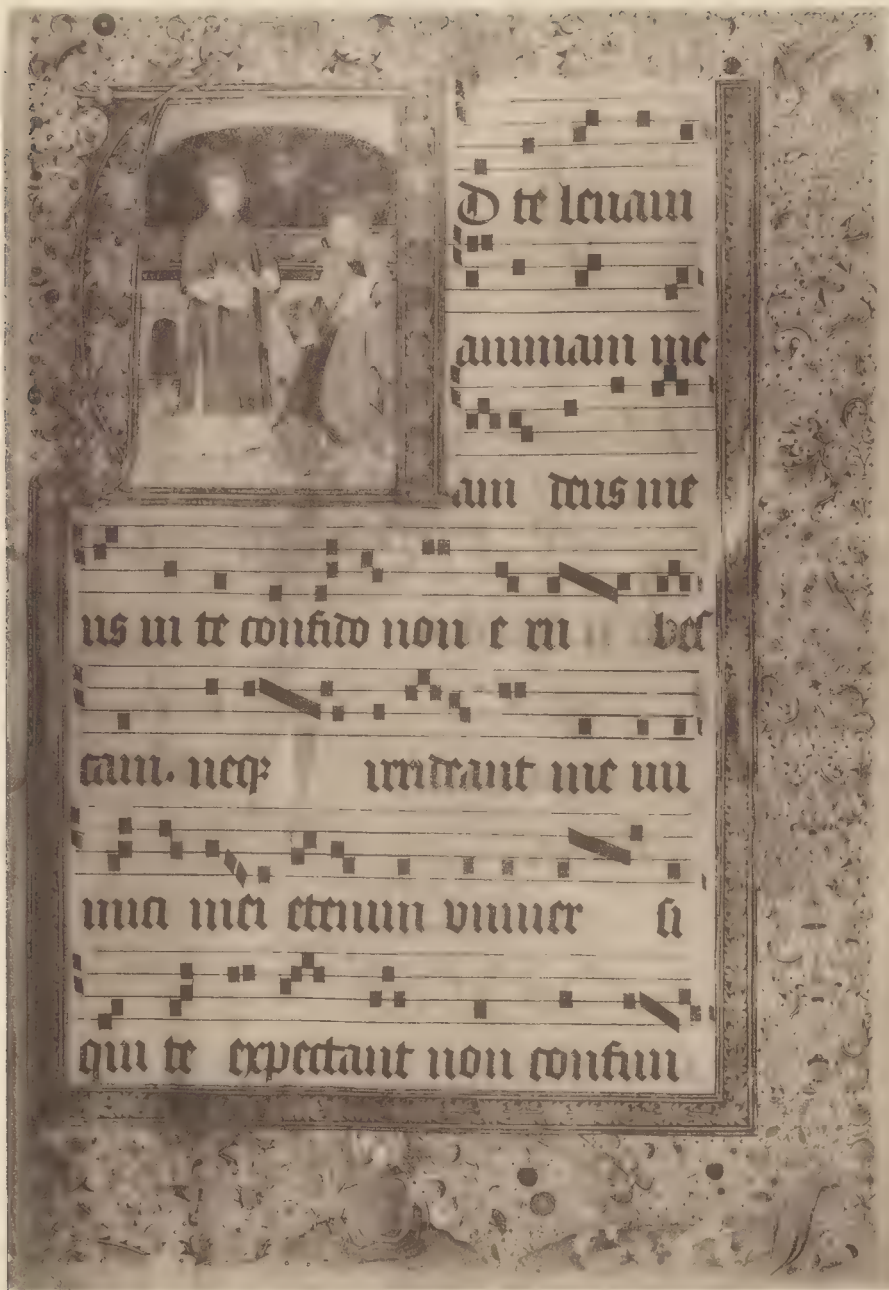 D te leuam
animam me
am deus me
us in te confido non e ru bes
cam. neqꝫ irrideant me ini
mici mei etenim vniuer si
qui te expectant non confun